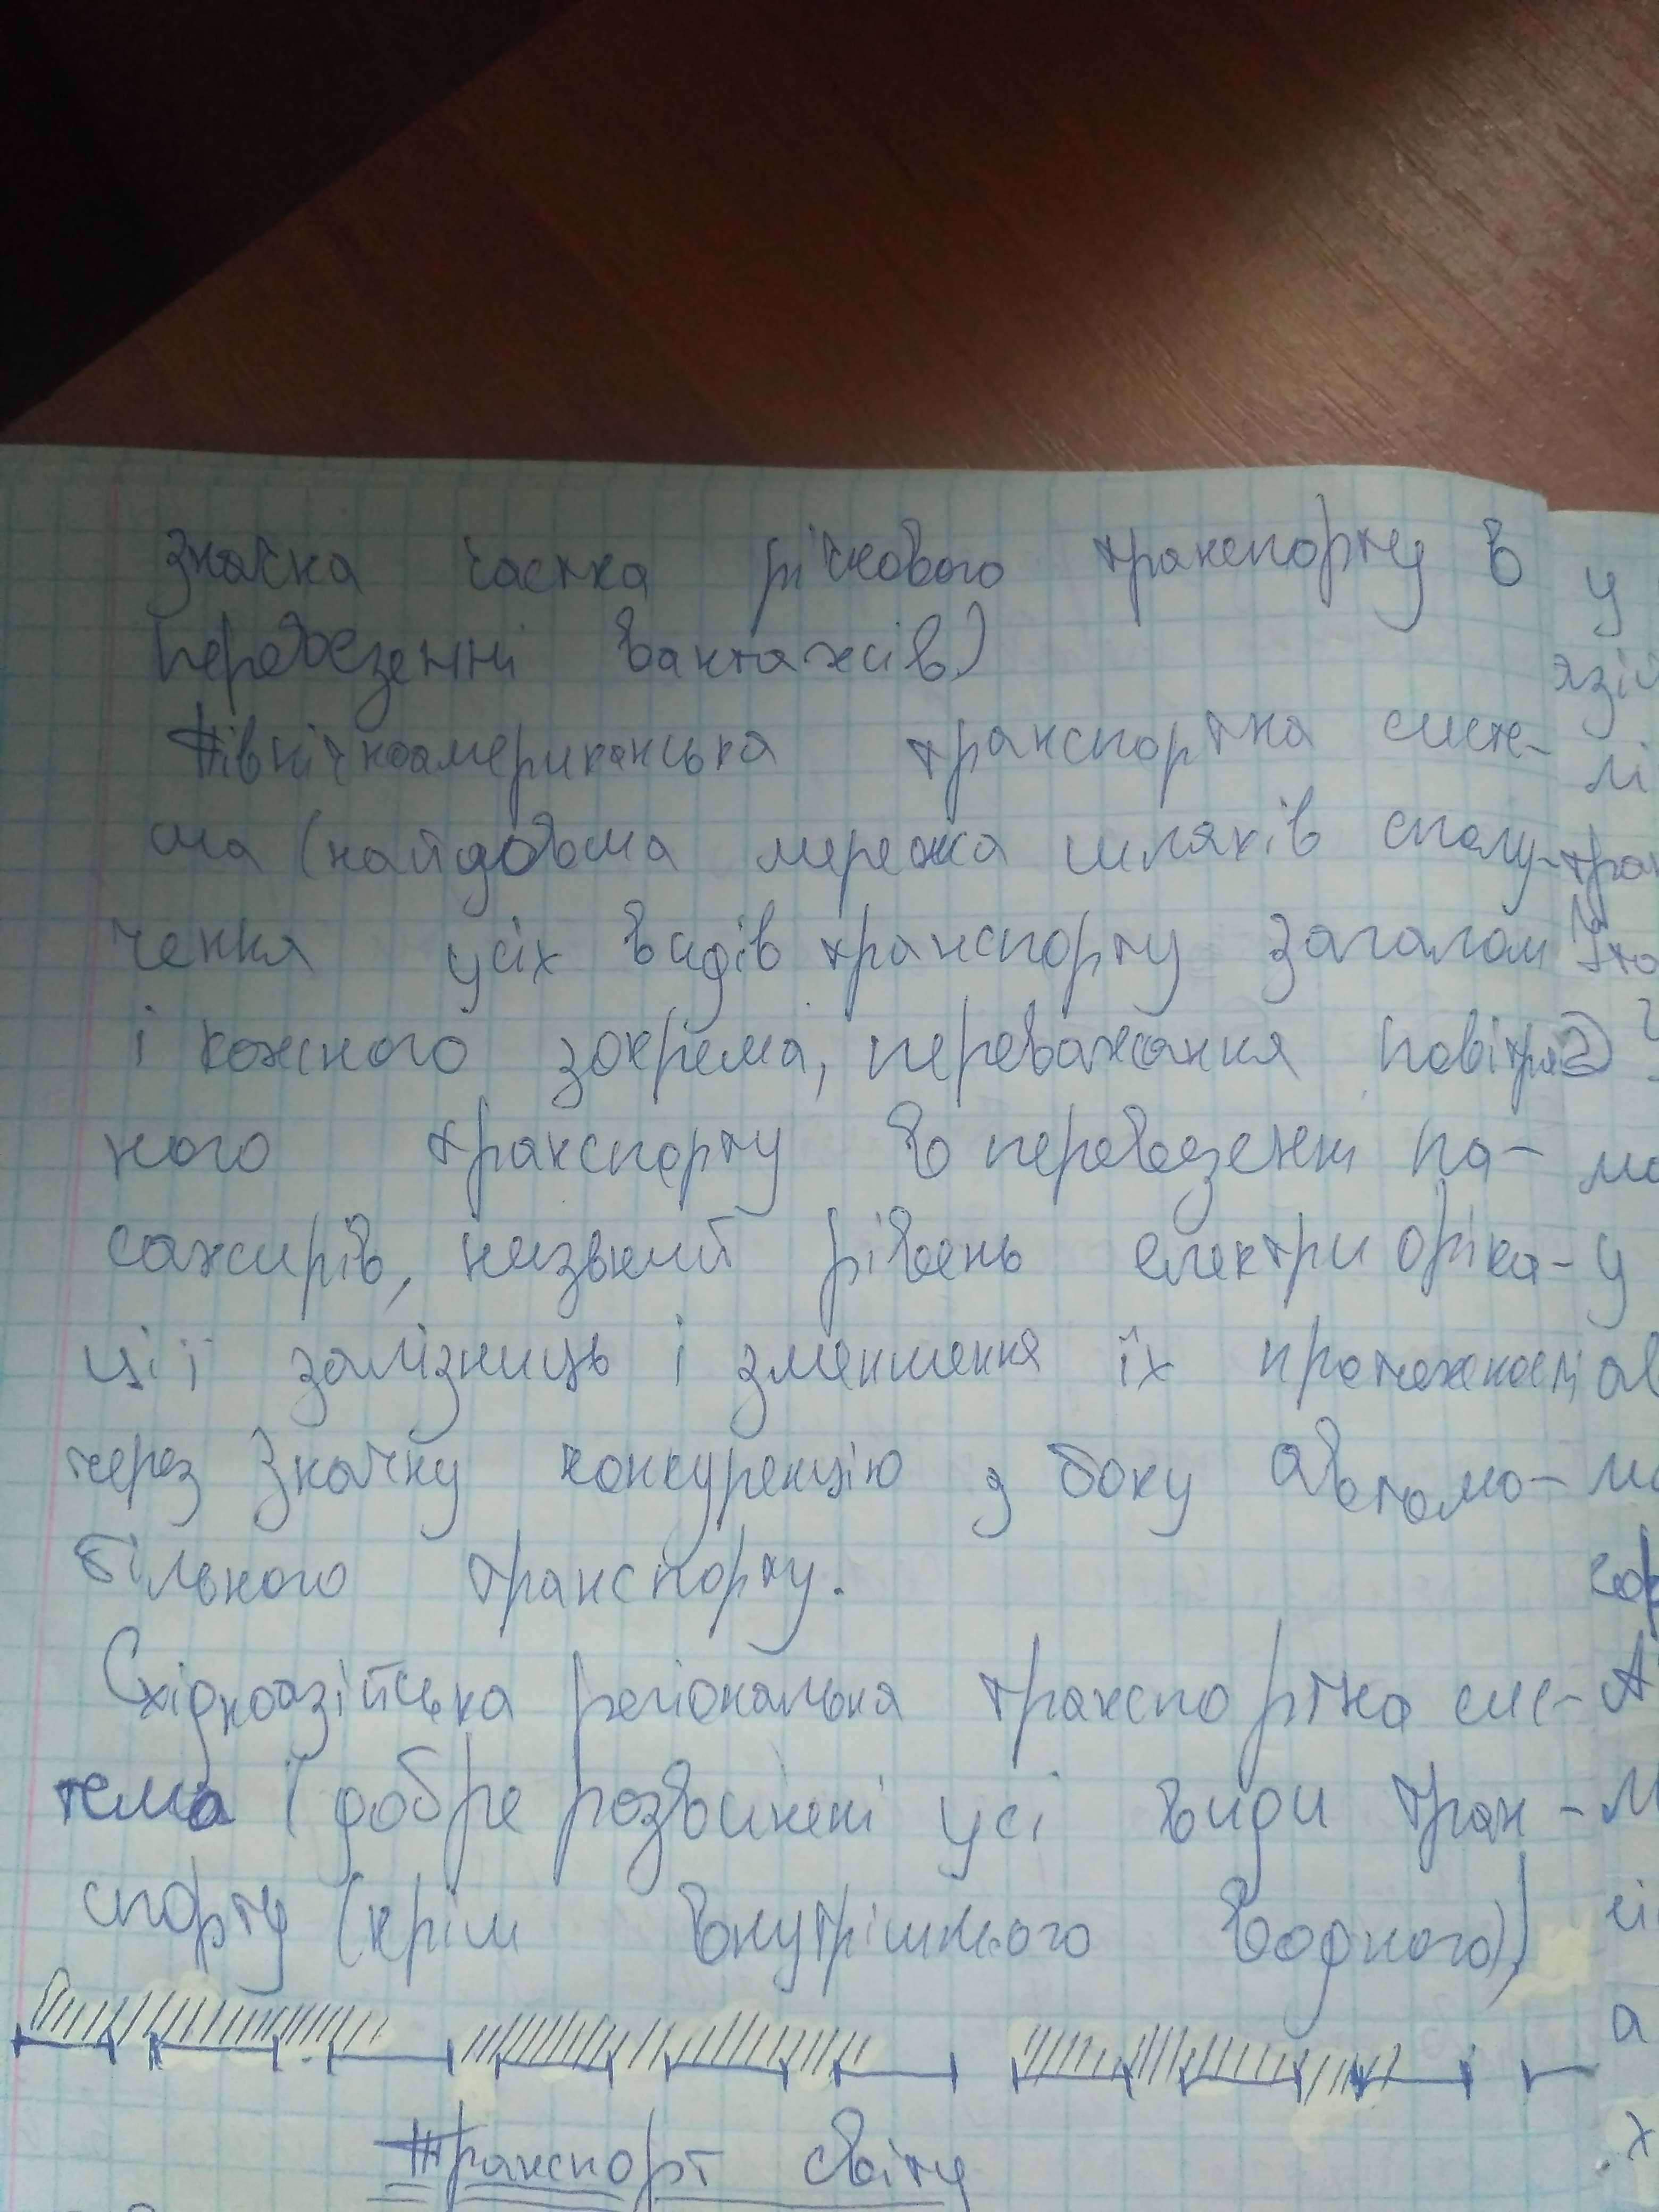 значна частка річкового транспорту в
перевезенні вантажів)
Північноамериканська транспортна систе-
ма (найдовша мережа шляхів сполу-
чення усіх видів транспорту загалом
і кожного зокрема, переважання повітря-
ного транспорту в перевезенні па-
сажирів, низький рівень електрифіка-
ції залізниць і зменшення їх протяжності
через значну конкуренцію з боку автомо-
більного транспорту.
Східноазійська регіональна транспортна сис-
тема (добре розвинені усі види тран-
спорту (крім внутрішнього водного))
Транспорт світу